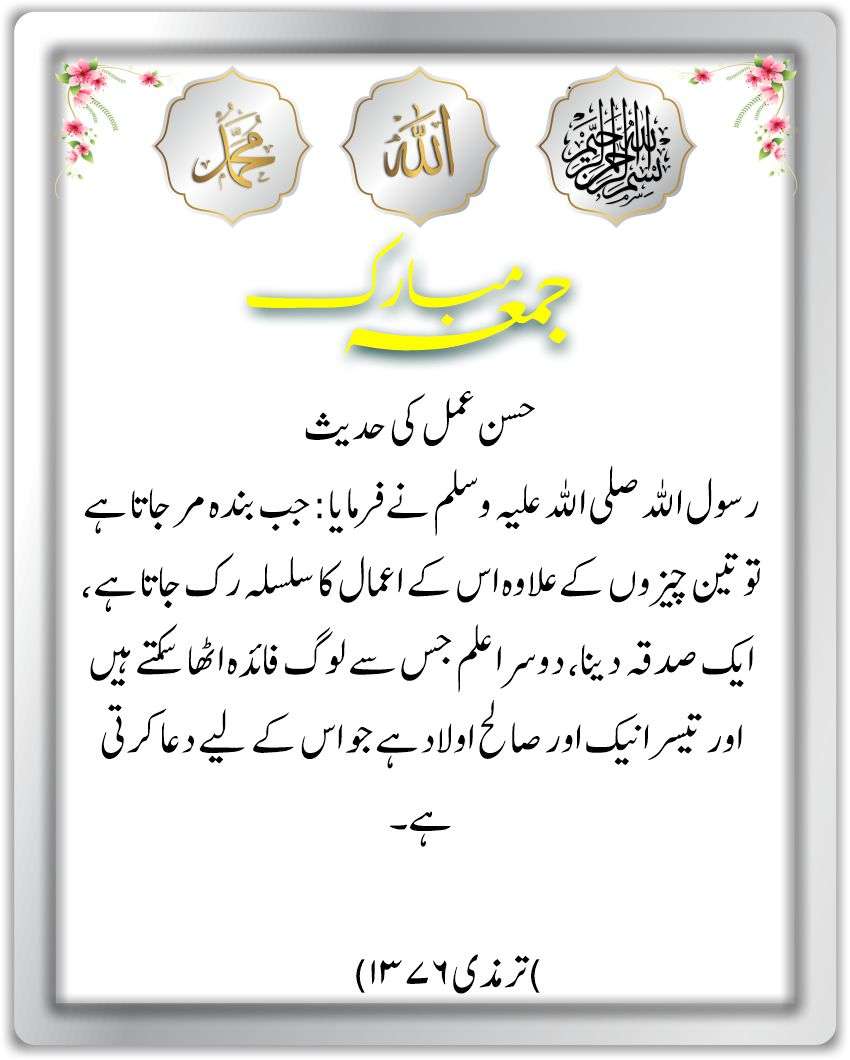 بسم الله الرحمن الرحيم
الله
محمد
جمعہ مبارک
حسن عمل کی حدیث
رسول اللہ صلی اللہ علیہ وسلم نے فرمایا: جب بندہ مر جاتا ہے
تو تین چیزوں کے علاوہ اس کے اعمال کا سلسلہ رک جاتا ہے،
ایک صدقہ دینا، دوسرا علم جس سے لوگ فائدہ اٹھا سکتے ہیں
اور تیسرا نیک اور صالح اولاد ہے جو اس کے لیے دعا کرتی
ہے۔
(ترمذی ۱۳۷۶)